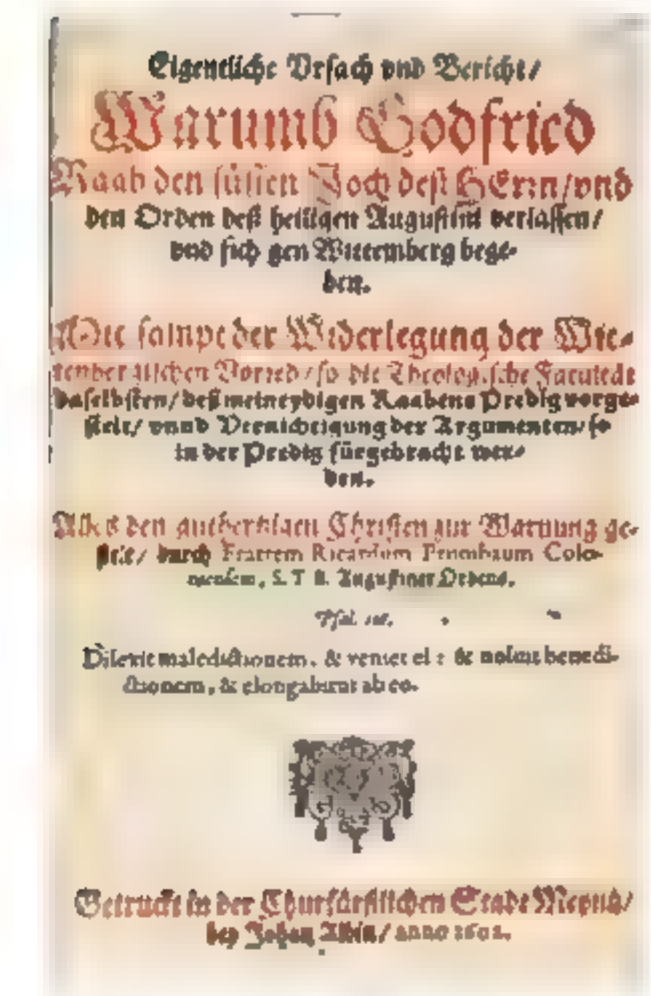 Eigentliche Vrsach vnd Bericht/
Warumb Godfried
Raab den süssen Joch deß HErrn/vnd
den Orden deß heiligen Augustini verlassen/
vnd sich gen Wittemberg bege-
ben.
Mit sampt der Widerlegung der Wit-
tenbergischen Vorred/so die Theologische Facultedt
daselbsten/deß meineydigen Raabens Predig vorge-
stelt/vnnd Vernichtigung der Argumenten/so
in der Predig fürgebracht wer-
den.
Alles den gutherzigen Christen zur Warnung ge-
stelt/durch Fratrem Ricardum Colo-
niensem, S. T. Augustiner Ordens.
Psal.
Dilexit maledictionem, & veniet ei: & noluit benedi-
ctionem, & elongabitur ab eo.
Getruckt in der Churfürstlichen Stadt Meyntz/
bey Johan Albin/anno